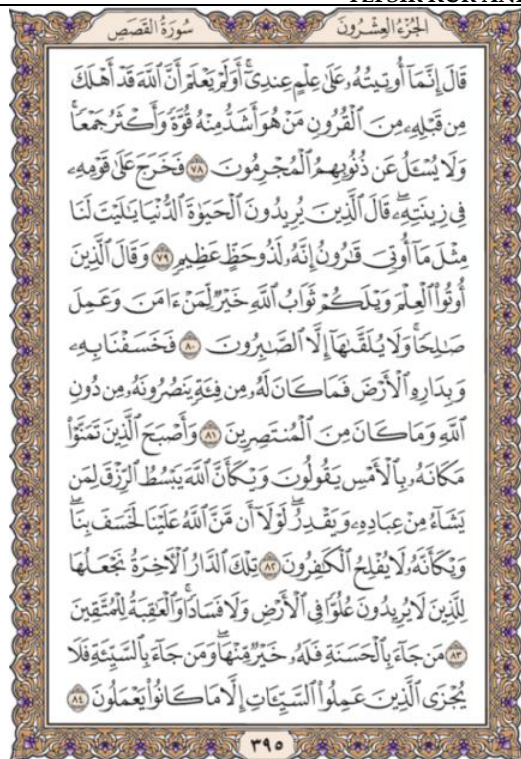 سُورَةُ القَصَصِ
الجُزْءُ العِشْرُونَ
قَالَ إِنَّمَآ أُوتِيتُهُۥ عَلَىٰ عِلْمٍ عِندِىٓۚ أَوَلَمْ يَعْلَمْ أَنَّ ٱللَّهَ قَدْ أَهْلَكَ
مِن قَبْلِهِۦ مِنَ ٱلْقُرُونِ مَنْ هُوَ أَشَدُّ مِنْهُ قُوَّةً وَأَكْثَرُ جَمْعًاۚ
وَلَا يُسْـَٔلُ عَن ذُنُوبِهِمُ ٱلْمُجْرِمُونَ ٧٨ فَخَرَجَ عَلَىٰ قَوْمِهِۦ
فِى زِينَتِهِۦۖ قَالَ ٱلَّذِينَ يُرِيدُونَ ٱلْحَيَوٰةَ ٱلدُّنْيَا يَـٰلَيْتَ لَنَا
مِثْلَ مَآ أُوتِىَ قَـٰرُونُ إِنَّهُۥ لَذُو حَظٍّ عَظِيمٍ ٧٩ وَقَالَ ٱلَّذِينَ
أُوتُوا۟ ٱلْعِلْمَ وَيْلَكُمْ ثَوَابُ ٱللَّهِ خَيْرٌ لِّمَنْ ءَامَنَ وَعَمِلَ
صَـٰلِحًا وَلَا يُلَقَّىٰهَآ إِلَّا ٱلصَّـٰبِرُونَ ٨٠ فَخَسَفْنَا بِهِۦ
وَبِدَارِهِ ٱلْأَرْضَ فَمَا كَانَ لَهُۥ مِن فِئَةٍ يَنصُرُونَهُۥ مِن دُونِ
ٱللَّهِ وَمَا كَانَ مِنَ ٱلْمُنتَصِرِينَ ٨١ وَأَصْبَحَ ٱلَّذِينَ تَمَنَّوْا۟
مَكَانَهُۥ بِٱلْأَمْسِ يَقُولُونَ وَيْكَأَنَّ ٱللَّهَ يَبْسُطُ ٱلرِّزْقَ لِمَن
يَشَآءُ مِنْ عِبَادِهِۦ وَيَقْدِرُۖ لَوْلَآ أَن مَّنَّ ٱللَّهُ عَلَيْنَا لَخَسَفَ بِنَاۖ
وَيْكَأَنَّهُۥ لَا يُفْلِحُ ٱلْكَـٰفِرُونَ ٨٢ تِلْكَ ٱلدَّارُ ٱلْـَٔاخِرَةُ نَجْعَلُهَا
لِلَّذِينَ لَا يُرِيدُونَ عُلُوًّا فِى ٱلْأَرْضِ وَلَا فَسَادًاۚ وَٱلْعَـٰقِبَةُ لِلْمُتَّقِينَ
٨٣ مَن جَآءَ بِٱلْحَسَنَةِ فَلَهُۥ خَيْرٌ مِّنْهَاۖ وَمَن جَآءَ بِٱلسَّيِّئَةِ فَلَا
يُجْزَى ٱلَّذِينَ عَمِلُوا۟ ٱلسَّيِّـَٔاتِ إِلَّا مَا كَانُوا۟ يَعْمَلُونَ ٨٤
٣٩٥